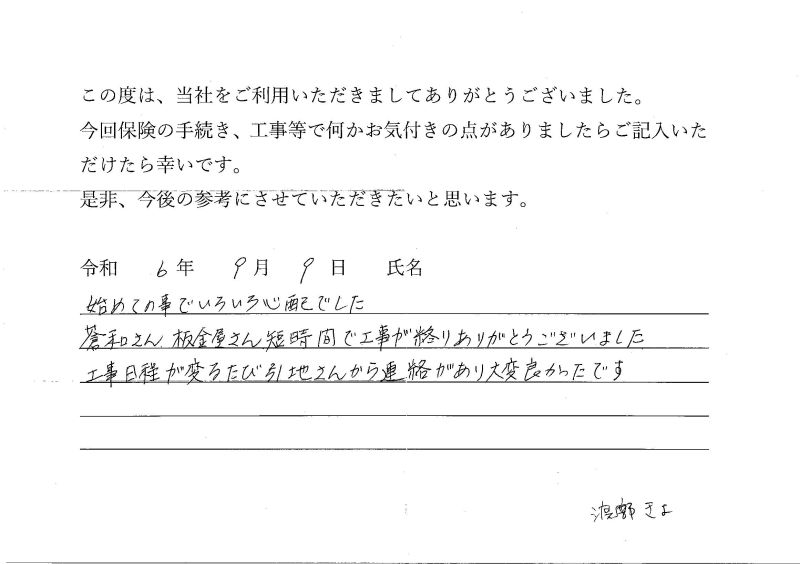 この度は、当社をご利用いただきましてありがとうございました。
今回保険の手続き、工事等で何かお気付きの点がありましたらご記入いた
だけたら幸いです。
是非、今後の参考にさせていただきたいと思います。
令和 6 年 9 月 9 日 氏名
始めての事でいろいろ心配でした
蒼和さん 板金屋さん短時間で工事が終りありがとうございました
工事日程が変るたび引地さんから連絡があり大変良かったです
きよ